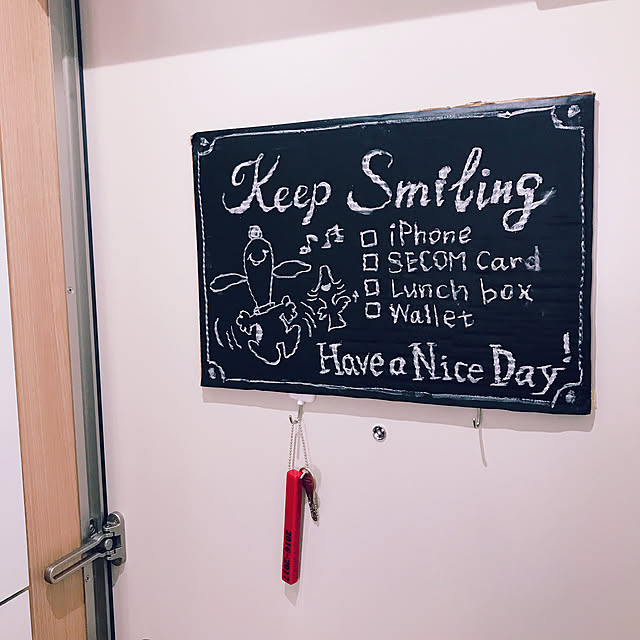 Keep Smiling
iPhone
SECOM Card
Lunch box
Wallet
Have a Nice Day!